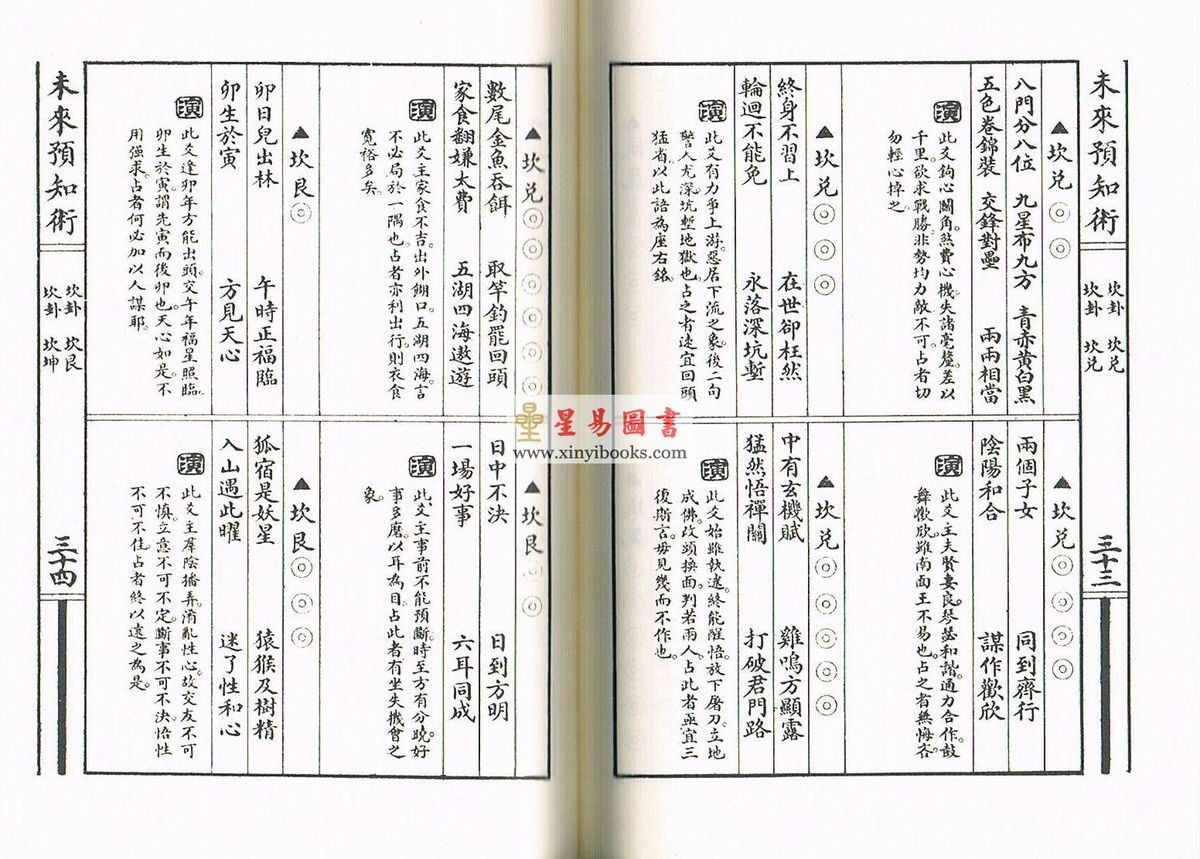 未來預知術
坎卦 坎兌
坎卦 坎兌
三十三
▲坎兌◎◎
八門分八位 九星布九方 青赤黃白黑
五色卷錦裝 交鋒對壘 兩兩相當
演
此爻鉤心鬭角。煞費心機。失諸毫釐。差以
千里。欲求戰勝。非勢均力敵不可。占者切
勿輕心掉之。
▲坎兌◎◎◎◎
兩個子女 同到齊行
陰陽和合 謀作歡欣
演
此爻主夫賢妻良。琴瑟和諧。通力合作。鼓
舞歡欣。雖南面王不易也。占之者無悔吝
▲坎兌◎◎◎
終身不習上 在世卻枉然
輪迴不能免 永落深坑塹
演
此爻有力爭上游。惡居下流之象。後二句
警人尤深。坑塹地獄也。占之者速宜回頭
猛省。以此語為座右銘。
▲坎兌◎◎◎◎◎
中有玄機賦 雞鳴方顯露
猛然悟禪關 打破君門路
演
此爻始雖執迷。終能醒悟。放下屠刀。立地
成佛。改頭換面。判若兩人。占此者亟宜三
復斯言。毋見幾而不作也。
▲坎兌◎◎◎◎◎◎
數尾金魚吞餌 取竿釣罷回頭
家食翻嫌太費 五湖四海遨遊
演
此爻主家食不吉。出外餬口。五湖四海。言
不必局於一隅也。占者亦利出行。則衣食
寬裕多矣。
▲坎艮◎◎
日中不決 日到方明
一場好事 六耳同成
演
此爻主事前不能預斷。時至方有分曉。好
事多磨。以耳為目。占此者有坐失機會之
象。
▲坎艮◎
卯日兒出林 午時正福臨
卯生於寅 方見天心
演
此爻逢卯年方能出頭。交午年福星照臨。
卯生於寅。謂先寅而後卯也。天心如是。不
用強求。占者何必加以人謀耶。
▲坎艮◎◎◎
狐宿是妖星 猿猴及樹精
入山遇此曜 迷了性和心
演
此爻主羣陰播弄。淆亂性心。故交友不可
不慎。立意不可不定。斷事不可不決。悟性
不可不住。占者終以遠之為是。
未來預知術
坎卦 坎艮
坎卦 坎坤
三十四
星易圖書
www.xinyibooks.com